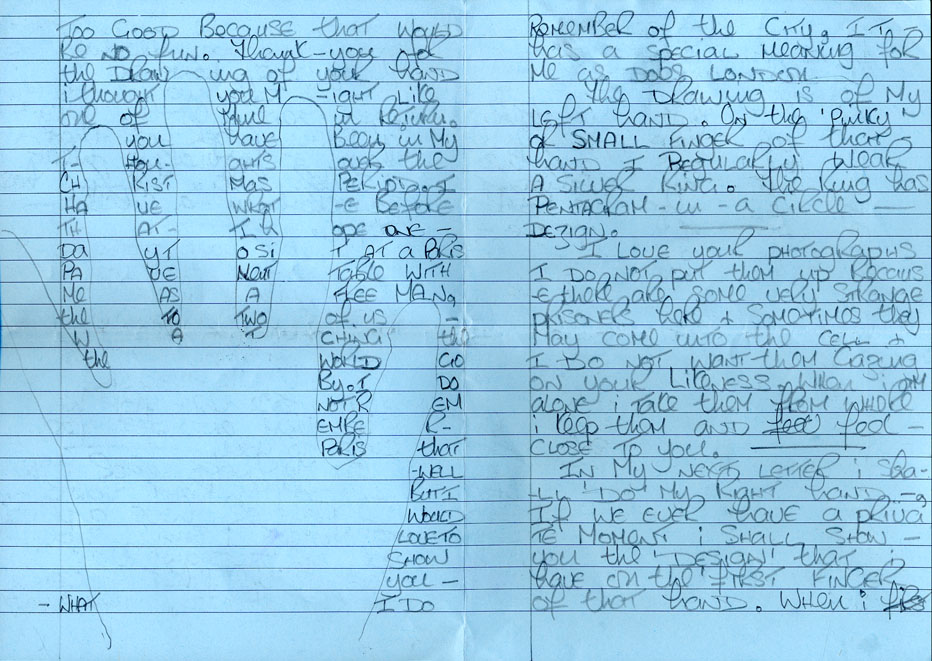 Too Good Because that would
Be no fun. Thank-you for
the Draw ing of your hand
i thought you M -ight Like
one of Mine in Return.
you have Been in My
T- HOU- GHTS over the
CH RIST MAS PERIOD. I
HA VE WHAT -E BEFORE
TH AT- I H OPE ONE -
DA Y I T O SI T AT A PARIS
PA VE MENT TABLE WITH
Me AS A FREE MAN,
the TO TWO OF US -
W A T CHING the
the WORLD GO
BY. I DO
NOT R EM
EMBE R-
PARIS that
-WELL
BUT I
WOULD
LOVE TO
SHOW
you -
- WHAT I DO
REMEMBER of the CITY. IT -
has a special meaning for
Me as DOES LONDON.
The DRAWING is of My
LEFT hand. On the 'PINKY'
or SMALL FINGER of that -
hand I REGULARLY WEAR
A SILVER RING. the RING has
PENTAGRAM - IN - A CIRCLE -
DESIGN.
I LOVE your photographs
I DO NOT put them up BECAUS
-E there are some very strange
prisoners here & SOMETIMES they
May come into the CELL &
I DO NOT WANT them Gazing
ON your LIKENESS. When i am
alone i TAKE them from where
i keep them and feel feel -
CLOSE TO YOU.
IN My NEXT LETTER i sha-
-LL 'DO' My RIGHT hand. -,
If WE EVER have a priva
TE MOMENT i SHALL SHOW -
you the 'DESIGN' that i
have on the FIRST FINGER
of that hand. When i